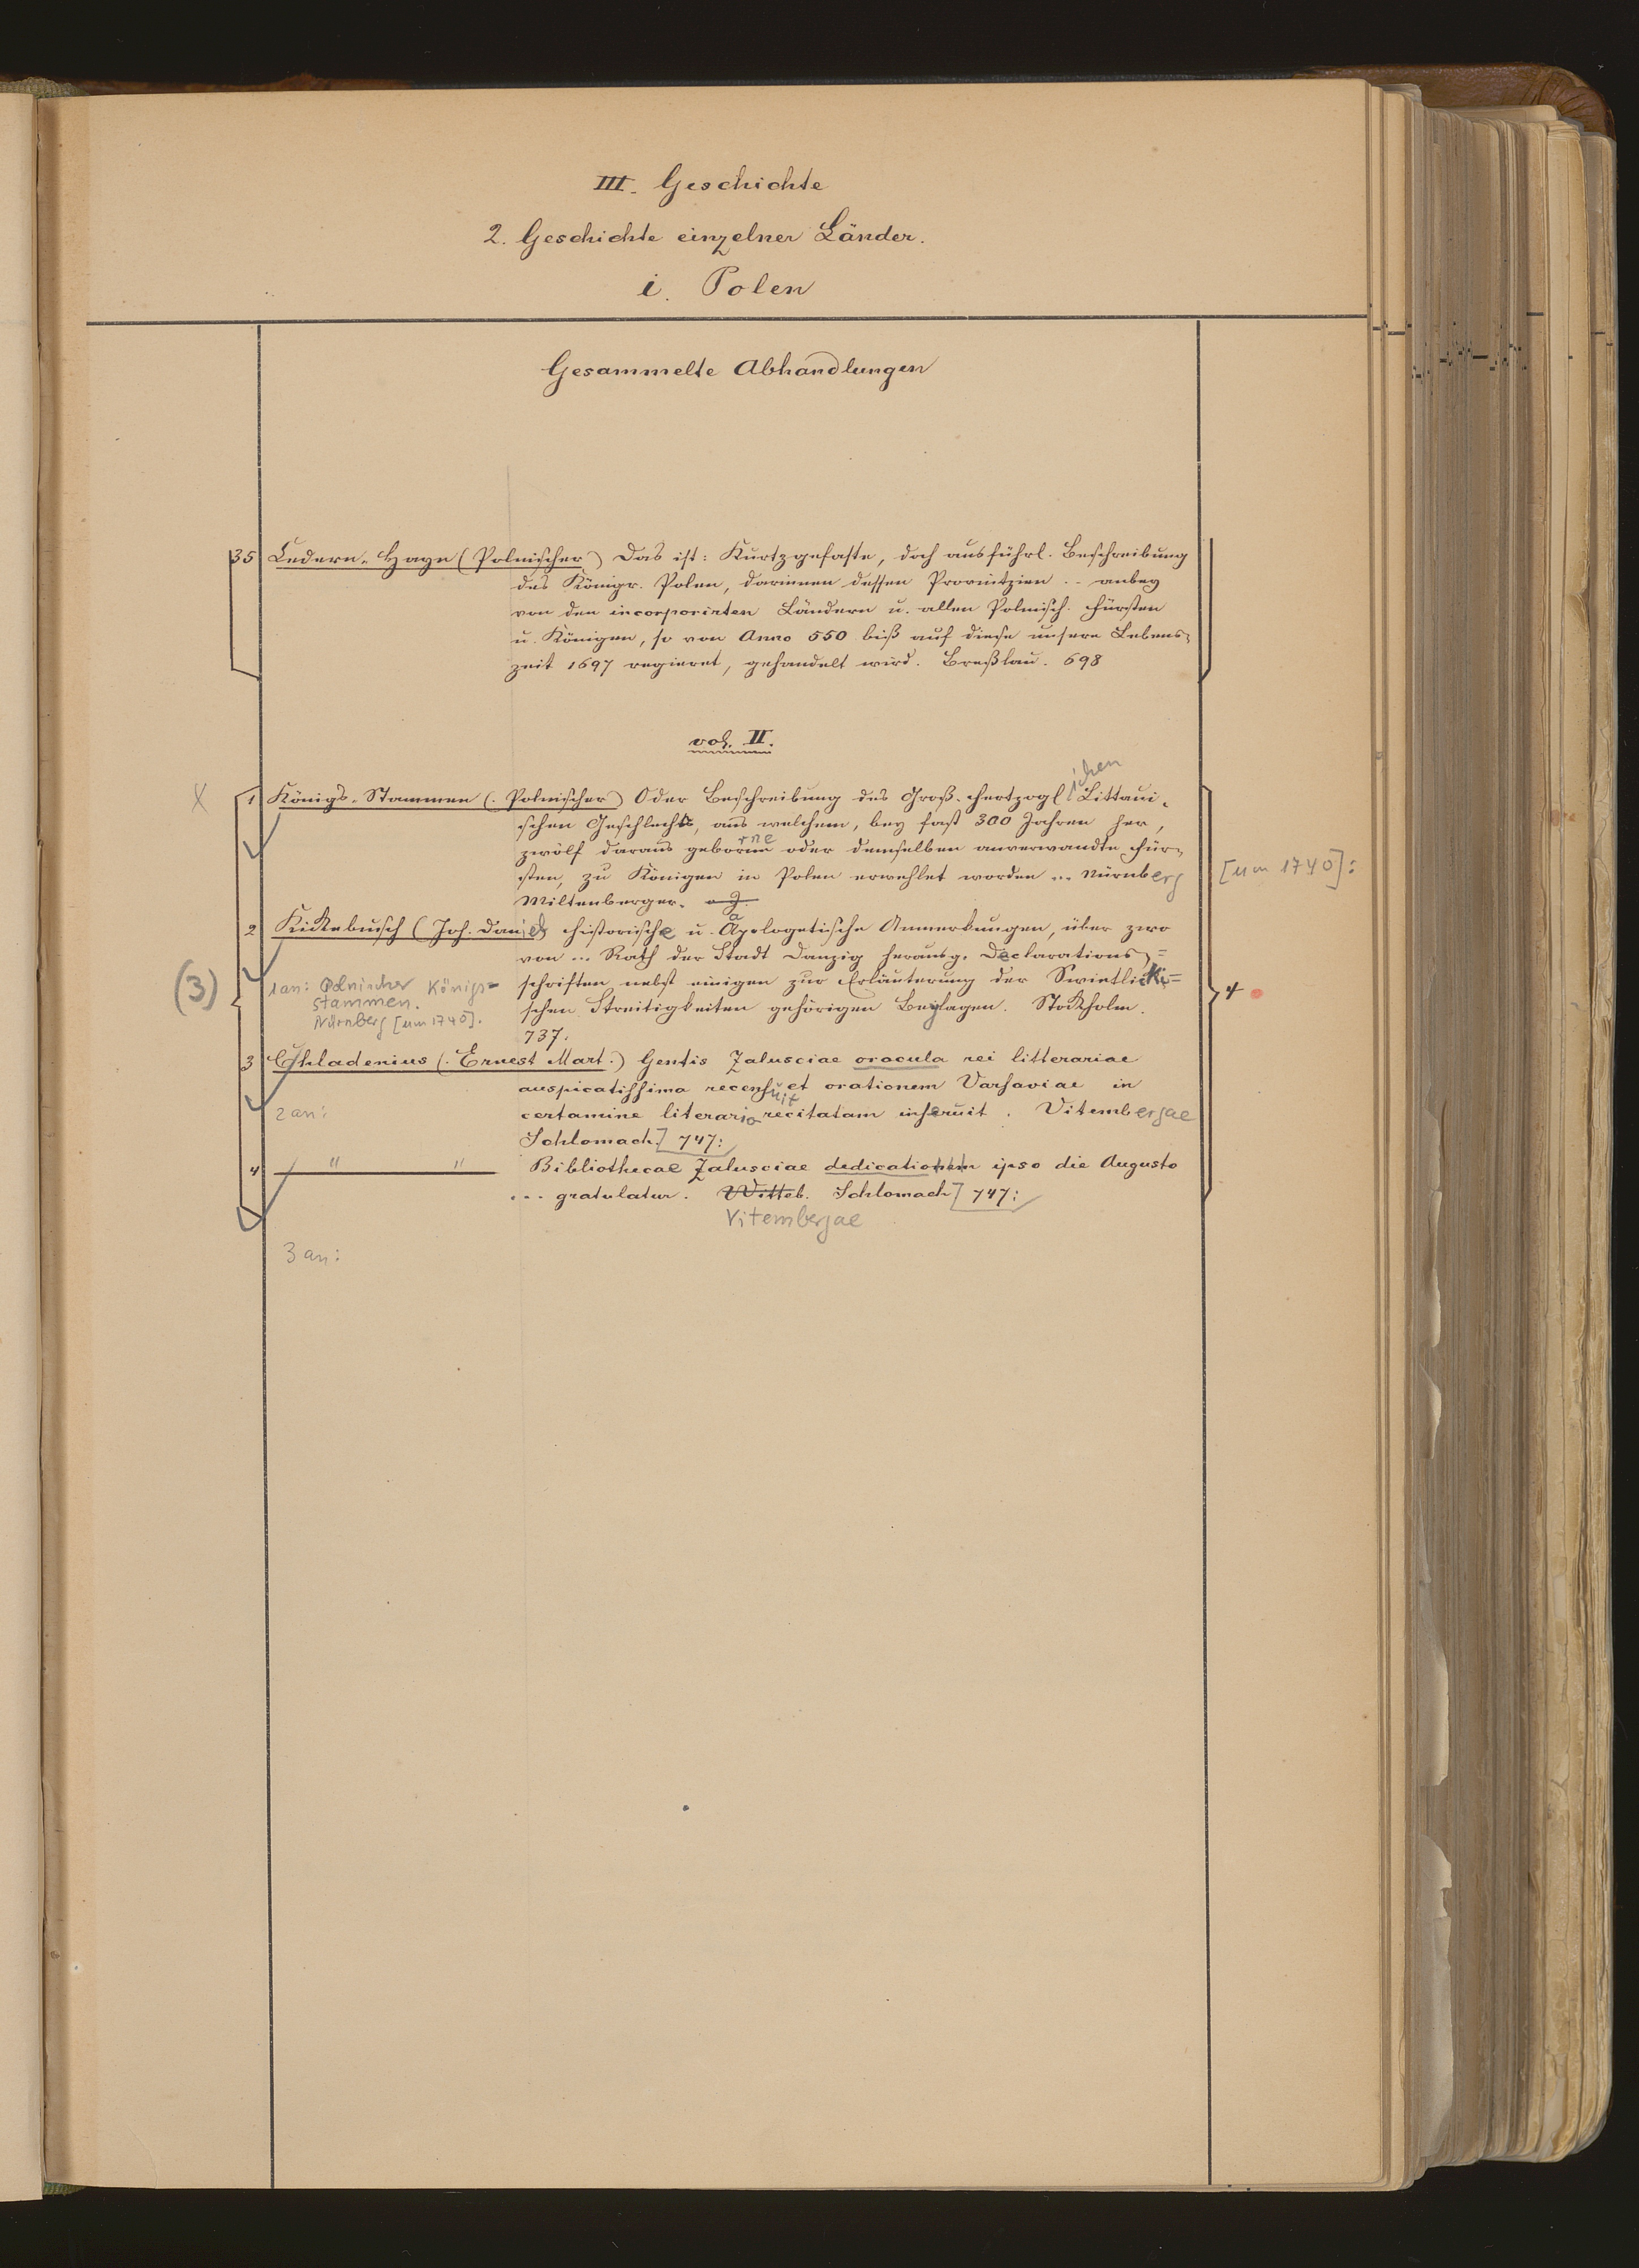 III. Geschichte
2. Geschichte einzelner Länder.
i. Polen
Gesammelte Abhandlungen
35 Ledern-Hayn (Polnischer) Das ist: Kurtzgefaste, doch ausführl. Beschreibung
des Königr. Polen, darinnen dessen Provintzien .. anbey
von den incorporirten Ländern u. allen Polnisch. Fürsten
u. Königen, so von Anno 550 biß auf diese unsere Lebens-
zeit 1697 regieret, gehandelt wird. Breßlau. 698
vol. II.
ichen
X 1 Königs-Stammen (. Polnischer) Oder Beschreibung des Groß-Hertzogl Littaui-
schen Geschlechts, aus welchem, bey fast 300 Jahren her,
zwölf daraus geborne oder demselben anverwandte Für-
sten, zu Königen in Polen erwehlet worden ... Nürnberg
[um 1740]:
Miltenberger.
2 Kickebusch (Joh. Daniel) Historische u. Apologetische Anmerkungen, über zwo
von ... Rath der Stadt Danzig herausg. Declarations-
schriften nebst einigen zur Erläuterung der Swietlicki=
schen Streitigkeiten gehörigen Beylagen. Stockholm.
737.
(3)
1 an: Polnischer Königs=
stammen.
Nürnberg [um 1740].
4
3 Chladenius (. Ernest Mart.) Gentis Zalusciae oracula rei litterariae
auspicatissima recensuit et orationem Varsaviae in
certamine literario recitatam inseruit. Vitembergae
Schlomach] 747:
2 an:
4 " " Bibliothecae Zalusciae dedicationem ipso die Augusto
... gratulatur. Witteb. Schlomach] 747:
Vitembergae
3 an: